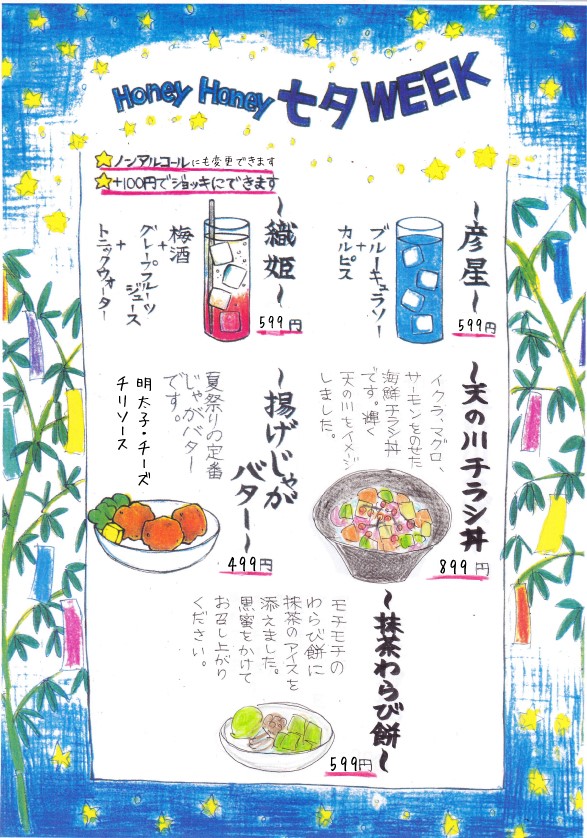 Honey Honey 七夕WEEK
★ノンアルコールにも変更できます
★+100円でジョッキにできます
~彦星~
ブルーキュラソー
+
カルピス
599円
~織姫~
梅酒
+
グレープフルーツ
ジュース
+
トニックウォーター
599円
~天の川チラシ丼~
イクラ、マグロ、
サーモンをのせた
海鮮チラシ丼
です。輝く
天の川をイメージ
しました。
899円
~揚げじゃが
バター~
夏祭りの定番
じゃがバター
です。
明太子・チーズ
チリソース
499円
~抹茶わらび餅~
モチモチの
わらび餅に
抹茶のアイスを
添えました。
黒蜜をかけて
お召し上がり
ください。
599円